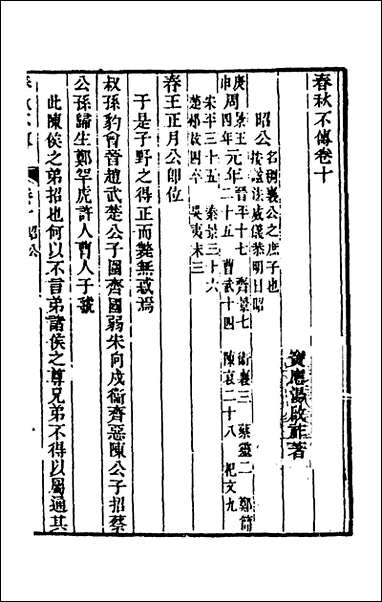 春秋不傳卷十
寶應湯啟祚著
昭公名稠襄公之庶子也
按謚法威儀恭明曰昭
庚周景王元年晉平十七 齊景七 衛襄三 蔡靈二 鄭簡
申四年二十五 曹武十四 陳哀二十八 杞文九
宋平三十五 秦景三十六
楚郟敖四 吳夷末三
春王正月公卽位
于是子野之得正而斃無惑焉
叔孫豹會晉趙武楚公子圍齊國弱宋向戌衞齊惡陳公子招蔡
公孫歸生鄭罕虎許人曹人于虢
此陳侯之弟招也何以不言弟諸侯之尊兄弟不得以屬通其
昭公